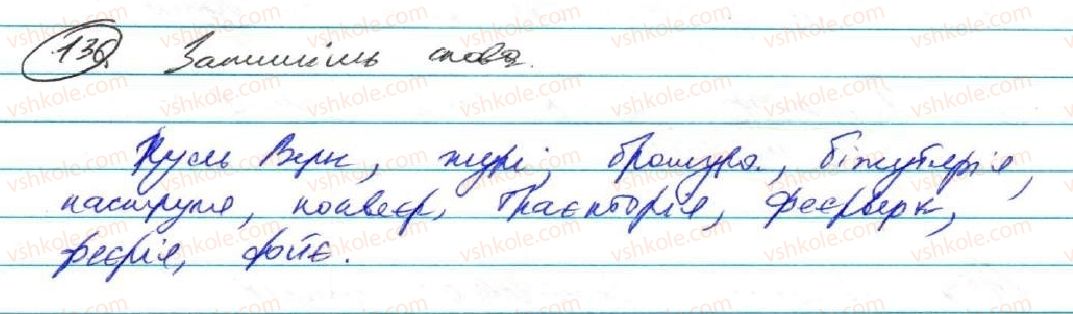 136. Запишіть слова.
Жуль Верн, журі, брошура, біжутерія,
каструля, конвеєр, траєкторія, феєрверк,
феєрія, фойє.